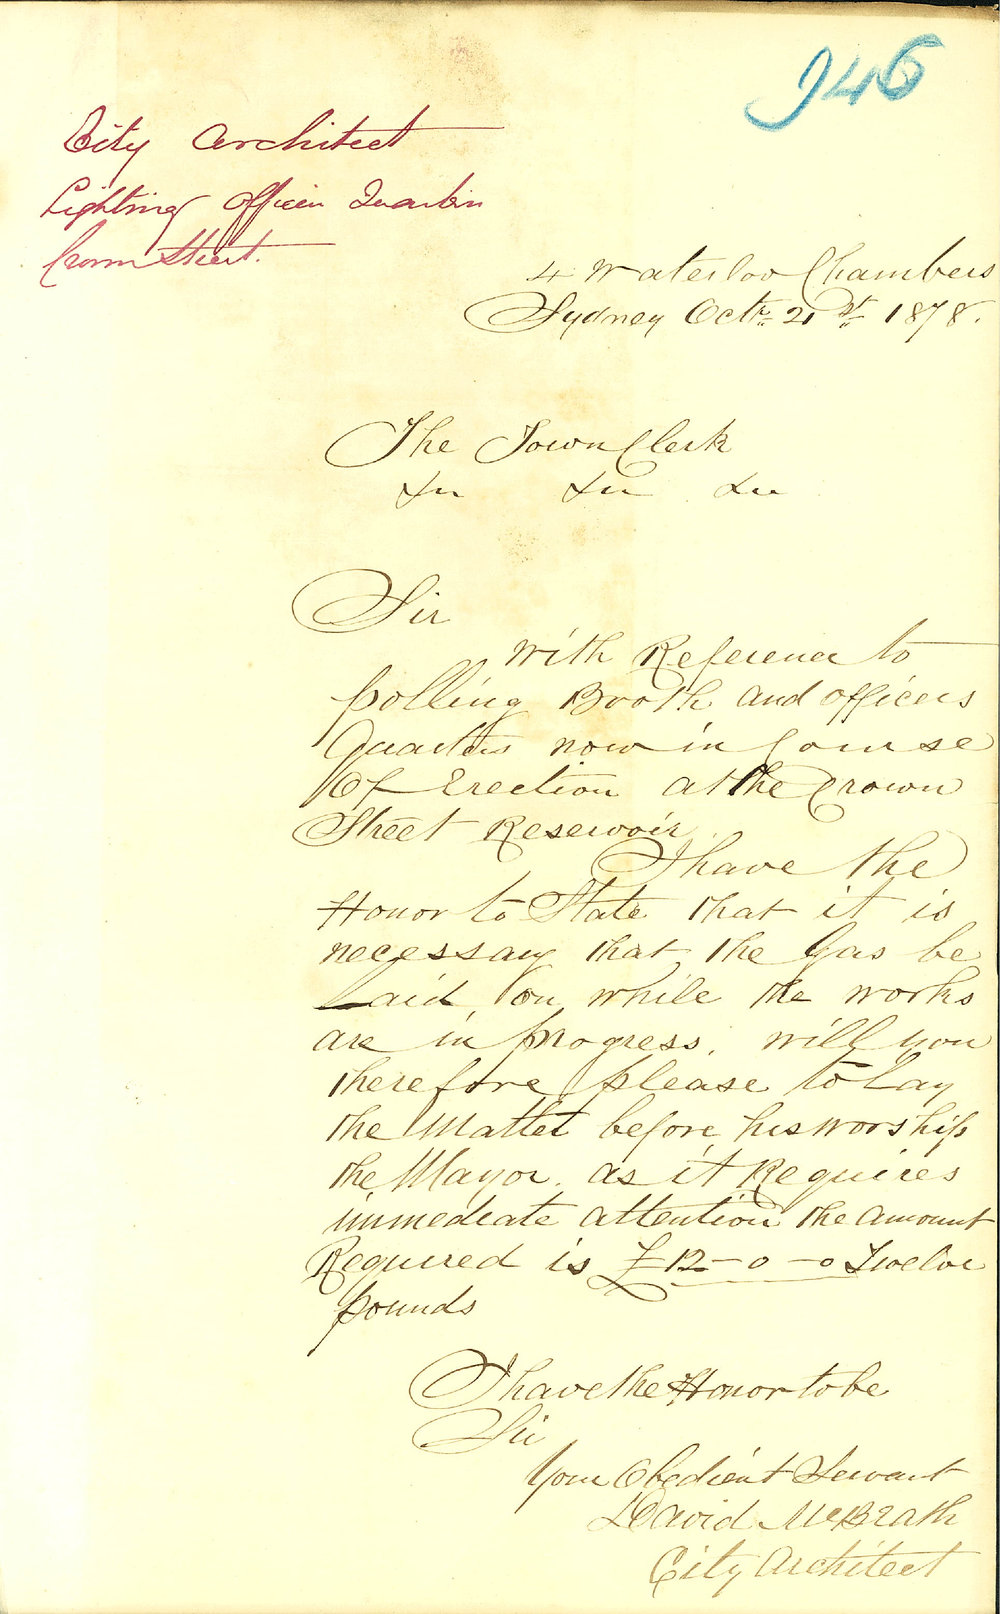 946
City Architect
Lighting Officers Quarters
Crown Street.
4 Waterloo Chambers
Sydney Octr. 21st. 1878.
The Town Clerk
&c &c &c
Sir
With Reference to
polling Booth and officers
Quarters now in Course
Of Erection at the Crown
Street Reservoir.
I have the
Honor to State that it is
necessary that the Gas be
Laid on, while the works
are in progress. will you
therefore please to Lay
the Matter before his worship
the Mayor. as it Requires
immediate attention the amount
Required is £12-0-0 Twelve
pounds
I have the Honor to be
Sir
Your Obedient Servant
David McBeath
City Architect